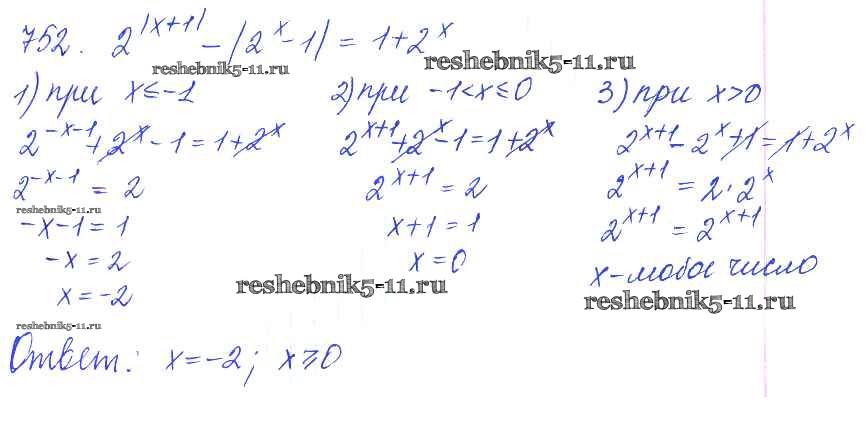 752. 2^|x+1| - |2^x - 1| = 1 + 2^x
reshebnik5-11.ru reshebnik5-11.ru
1) при x ≤ -1
2^(-x-1) + 2^x - 1 = 1 + 2^x
2^(-x-1) = 2
reshebnik5-11.ru
-x-1 = 1
-x = 2
x = -2
reshebnik5-11.ru
2) при -1 < x ≤ 0
2^(x+1) + 2^x - 1 = 1 + 2^x
2^(x+1) = 2
x+1 = 1
x = 0
reshebnik5-11.ru
3) при x > 0
2^(x+1) - 2^x + 1 = 1 + 2^x
2^(x+1) = 2 · 2^x
2^(x+1) = 2^(x+1)
x - любое число
reshebnik5-11.ru
Ответ: x = -2; x ≥ 0